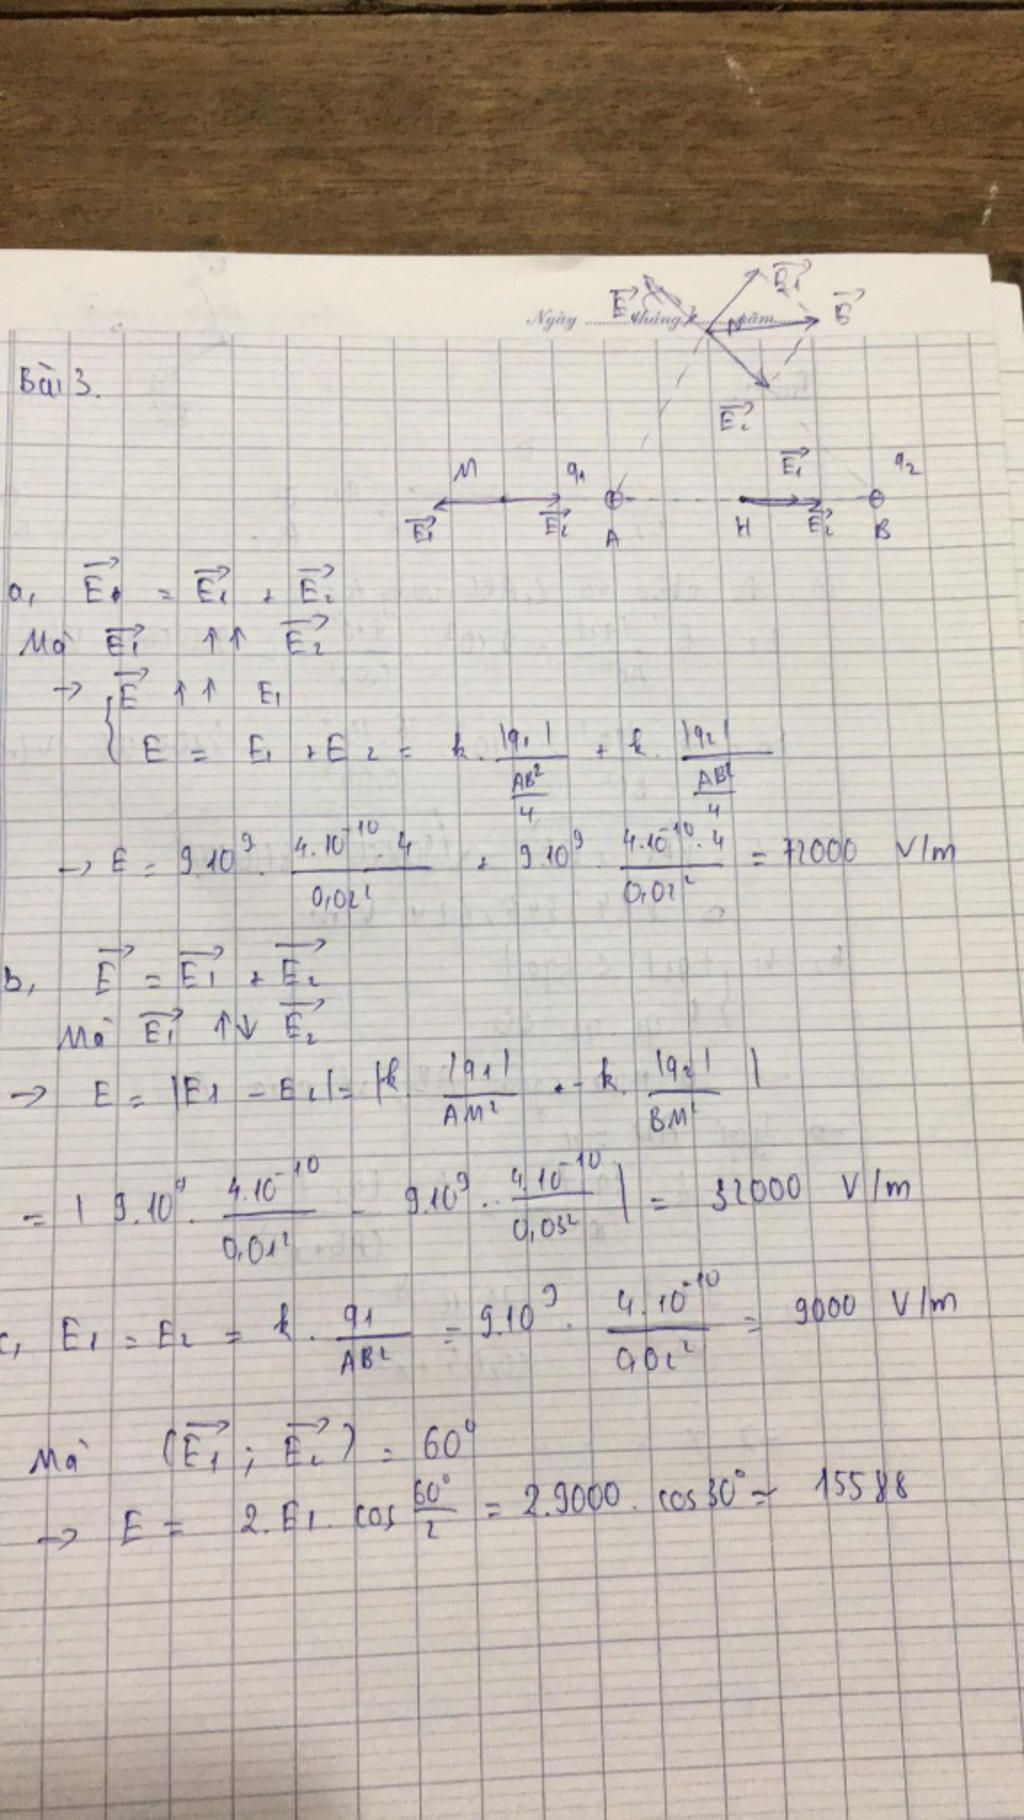 Ngày ........ tháng ........ năm ........
E⃗ E⃗₁ E⃗
Bài 3.
E⃗₂
M q₁ E⃗₁ q₂
E⃗₁ E⃗₂ A H E⃗₂ B
a, E⃗ = E⃗₁ + E⃗₂
Mà E⃗₁ ↑↑ E⃗₂
→ { E⃗ ↑↑ E₁
E = E₁ + E₂ = k . |q₁| / (AB²/4) + k . |q₂| / (AB²/4)
→ E = 9.10⁹ . (4.10⁻¹⁰ . 4) / 0,02² + 9.10⁹ . (4.10⁻¹⁰ . 4) / 0,02² = 72000 V/m
b, E⃗ = E⃗₁ + E⃗₂
Mà E⃗₁ ↑↓ E⃗₂
→ E = |E₁ - E₂| = |k . |q₁| / AM² - k . |q₂| / BM² |
= | 9.10⁹ . 4.10⁻¹⁰ / 0,01² - 9.10⁹ . 4.10⁻¹⁰ / 0,03² | = 32000 V/m
c, E₁ = E₂ = k . q₁ / AB² = 9.10⁹ . 4.10⁻¹⁰ / 0,02² = 9000 V/m
Mà (E⃗₁ ; E⃗₂) = 60⁰
→ E = 2.E₁. cos 60°/2 = 2.9000 . cos 30° = 15588